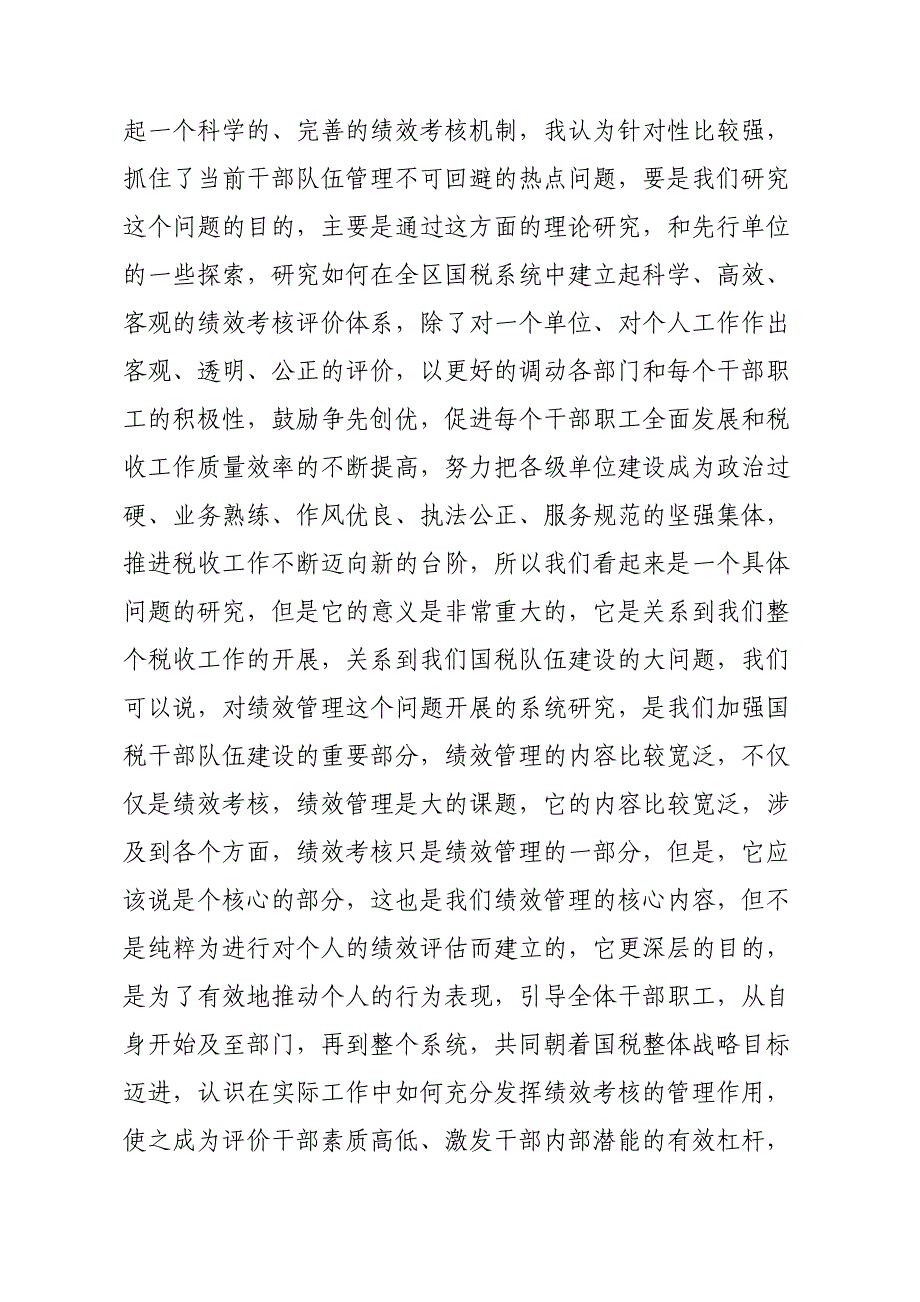 起一个科学的、完善的绩效考核机制，我认为针对性比较强，
抓住了当前干部队伍管理不可回避的热点问题，要是我们研究
这个问题的目的，主要是通过这方面的理论研究，和先行单位
的一些探索，研究如何在全区国税系统中建立起科学、高效、
客观的绩效考核评价体系，除了对一个单位、对个人工作作出
客观、透明、公正的评价，以更好的调动各部门和每个干部职
工的积极性，鼓励争先创优，促进每个干部职工全面发展和税
收工作质量效率的不断提高，努力把各级单位建设成为政治过
硬、业务熟练、作风优良、执法公正、服务规范的坚强集体，
推进税收工作不断迈向新的台阶，所以我们看起来是一个具体
问题的研究，但是它的意义是非常重大的，它是关系到我们整
个税收工作的开展，关系到我们国税队伍建设的大问题，我们
可以说，对绩效管理这个问题开展的系统研究，是我们加强国
税干部队伍建设的重要部分，绩效管理的内容比较宽泛，不仅
仅是绩效考核，绩效管理是大的课题，它的内容比较宽泛，涉
及到各个方面，绩效考核只是绩效管理的一部分，但是，它应
该说是个核心的部分，这也是我们绩效管理的核心内容，但不
是纯粹为进行对个人的绩效评估而建立的，它更深层的目的，
是为了有效地推动个人的行为表现，引导全体干部职工，从自
身开始及至部门，再到整个系统，共同朝着国税整体战略目标
迈进，认识在实际工作中如何充分发挥绩效考核的管理作用，
使之成为评价干部素质高低、激发干部内部潜能的有效杠杆，